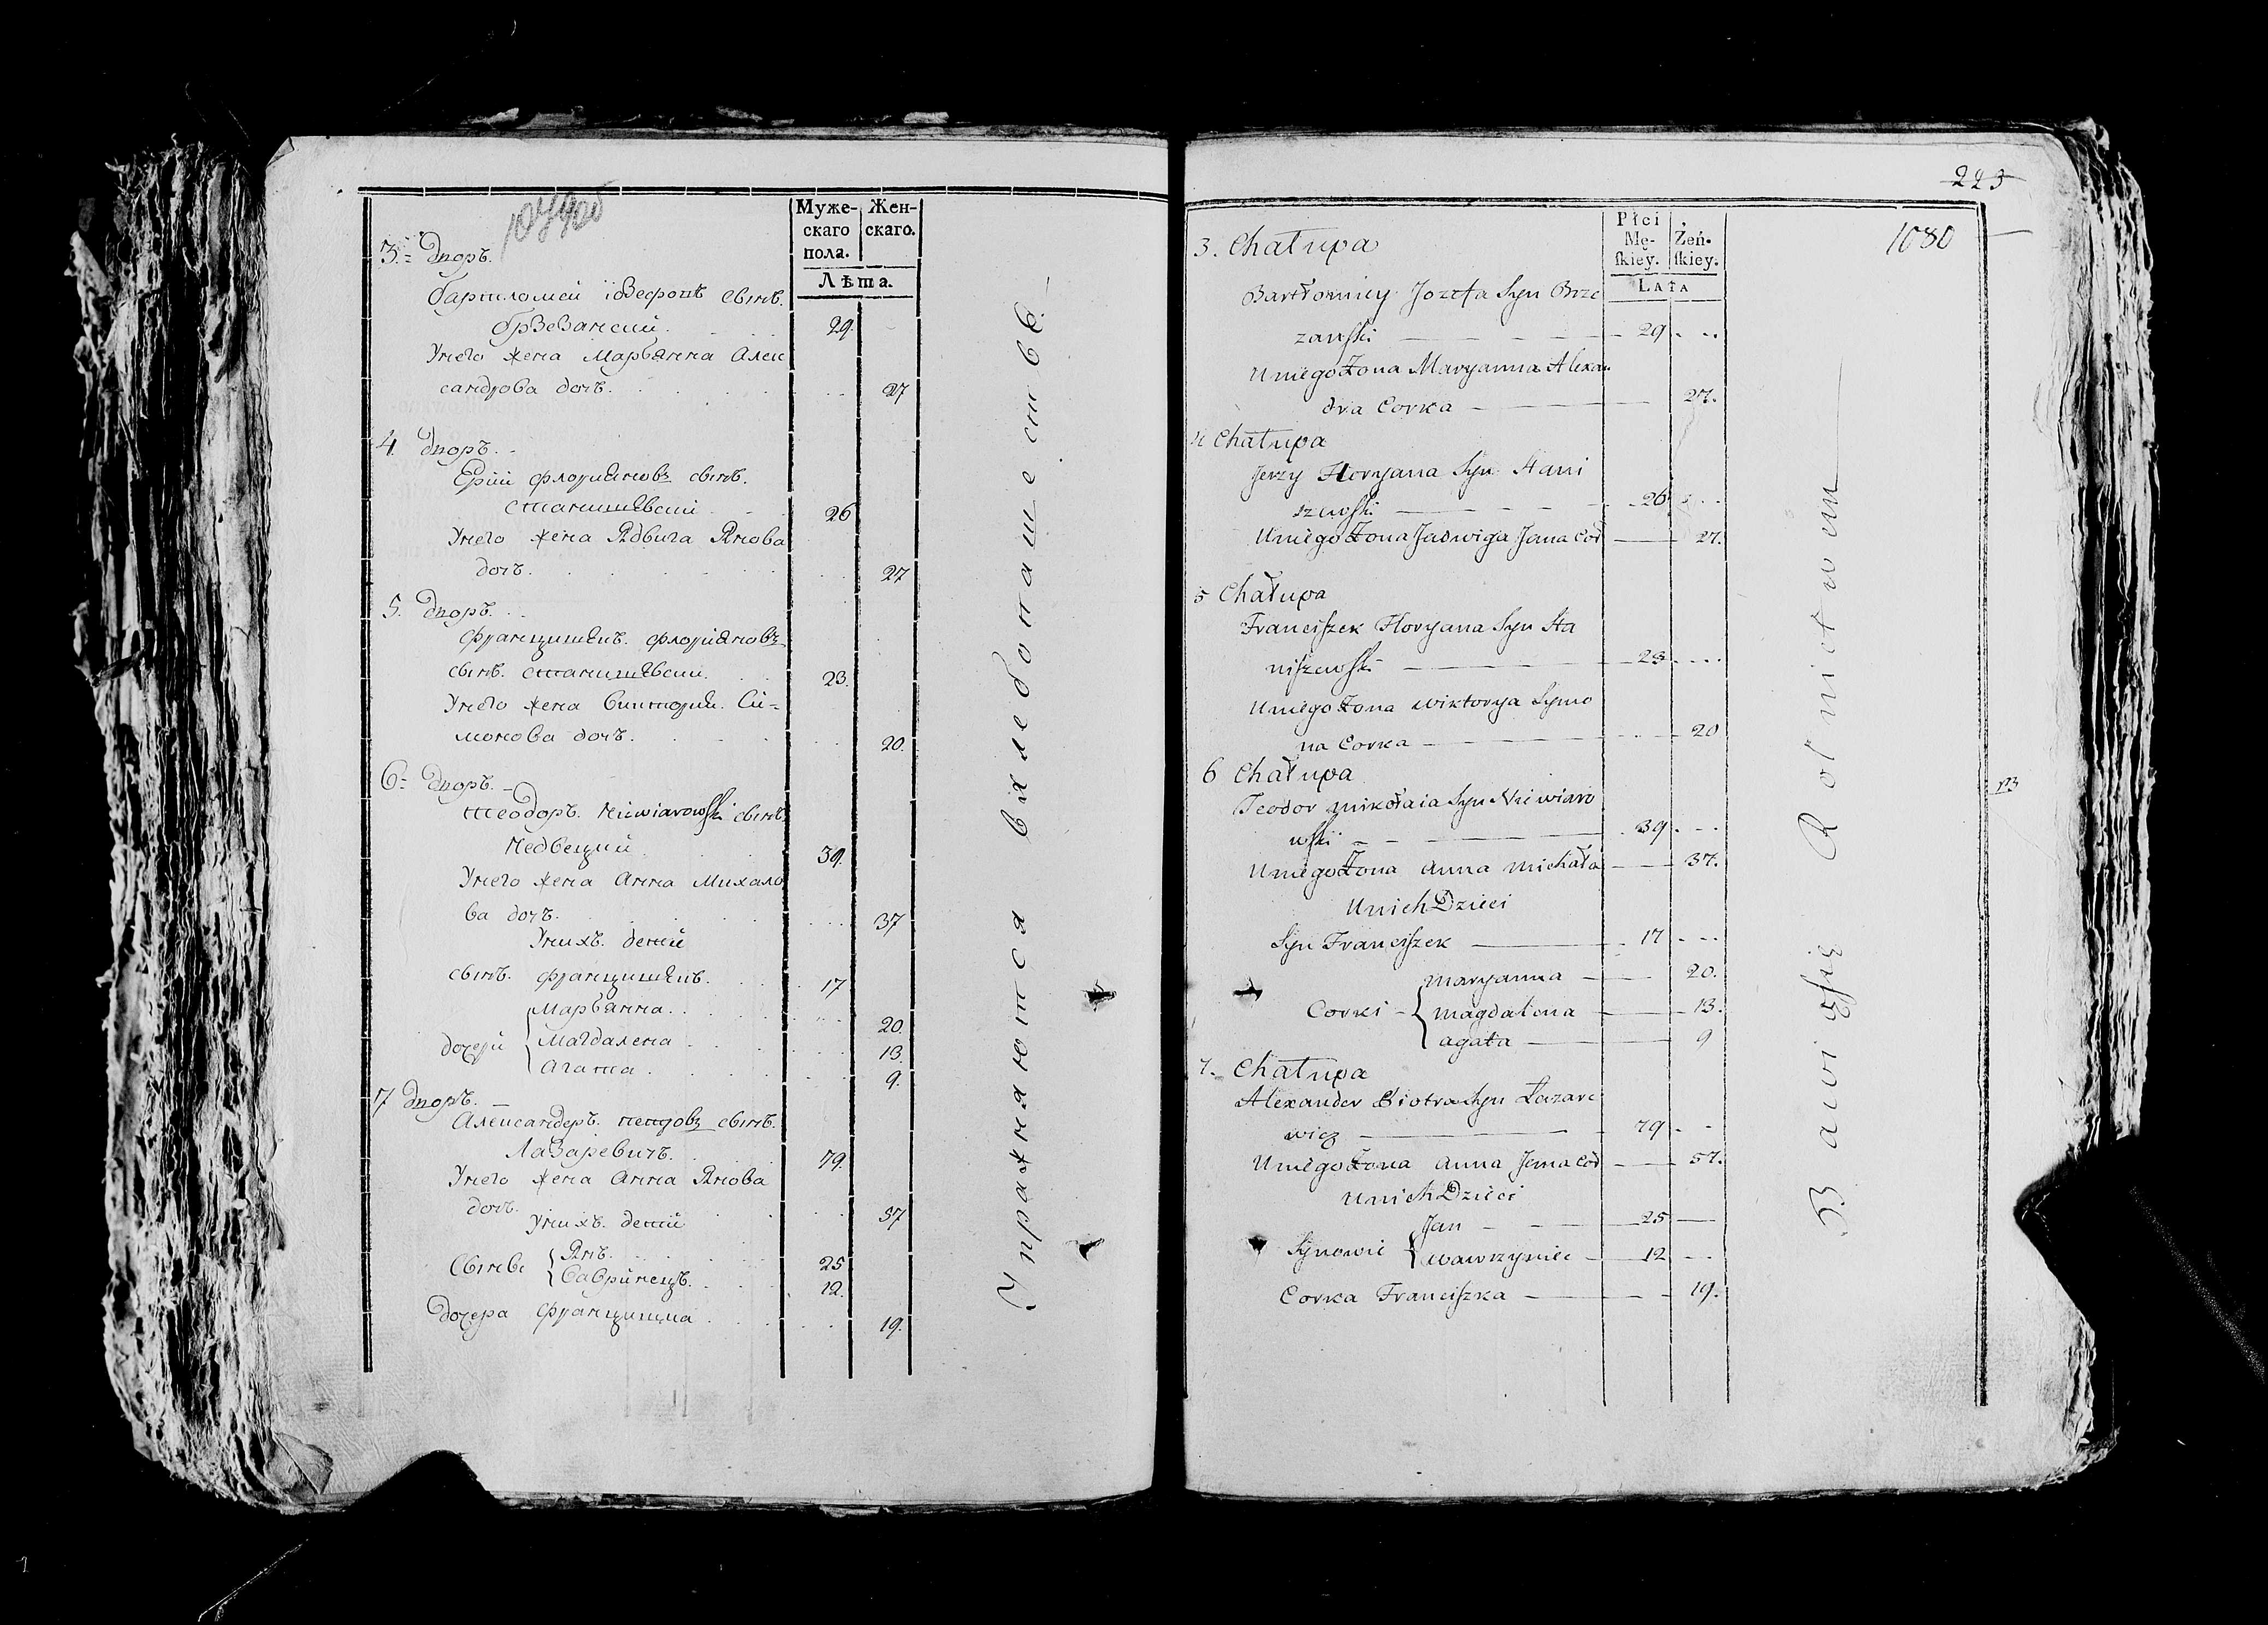 1079об
Муже-
скаго
пола.
Жен-
скаго.
Лѣта.
3. Дворъ.
Бартломей Іозефовъ сынъ.
Брзезанский. 29.
У него жена Марьянна Алек
сандрова дочь. 27
4 Дворъ.
Ерий Флориановъ сынъ.
Станишевский 26
У него жена Ядвига Янова
дочь. 27
5. Дворъ.
Францишекъ. Флориановъ
сынъ. Станишевский. 23.
У него жена Виктория. Си-
монова дочь. 20.
6. Дворъ.
Теодоръ. Niewiarowski сынъ.
39.
У него жена Анна Михало
ва дочь. 37
У нихъ. детей
сынъ. Францишекъ. 17
дочери
Марьянна. 20.
Магдалена 13.
Агата. 9.
7 Дворъ.
Александеръ. Петровъ сынъ.
Лазаревичъ. 79.
У него жена Анна Янова
дочь. 37
У нихъ. детей
Сынове
Янъ. 25
Вавринецъ. 12.
Дочера Францишка 19.
Упражняются в хлебопашестве.
223
1080
Płci
Mę-
ſkiey.
Żeń-
ſkiey.
LATA
3. Chałupa
Bartłomiey Jozefa Syn Brze
zanſki 29
U niego Żona Maryanna Alexan
dra Corka 27.
4 Chałupa
Jerzy Floryana Syn Stani
szewſki 26
U niego Żona Jadwiga Jana Cor 27.
5 Chałupa
Franciſzek Floryana Syn Sta
niſzewſki 23
U niego Żona Wiktorya Symo
na Corka 20
6 Chałupa
Teodor Mikołaia Syn Niewiaro
wſki 39
U niego Żona Anna Michała 37.
U nich Dzieci
Syn Franciſzek 17
Corki
Maryanna 20.
Magdalena 13.
Agata 9
7. Chałupa
Alexander Piotra Syn Łazare
wicz 79
U niego Żona Anna Jana Cor 57.
U nich Dzieci
Synowie
Jan 25
Wawrzyniec 12
Corka Franciſzka 19.
Bawią ſię Rolnictwem